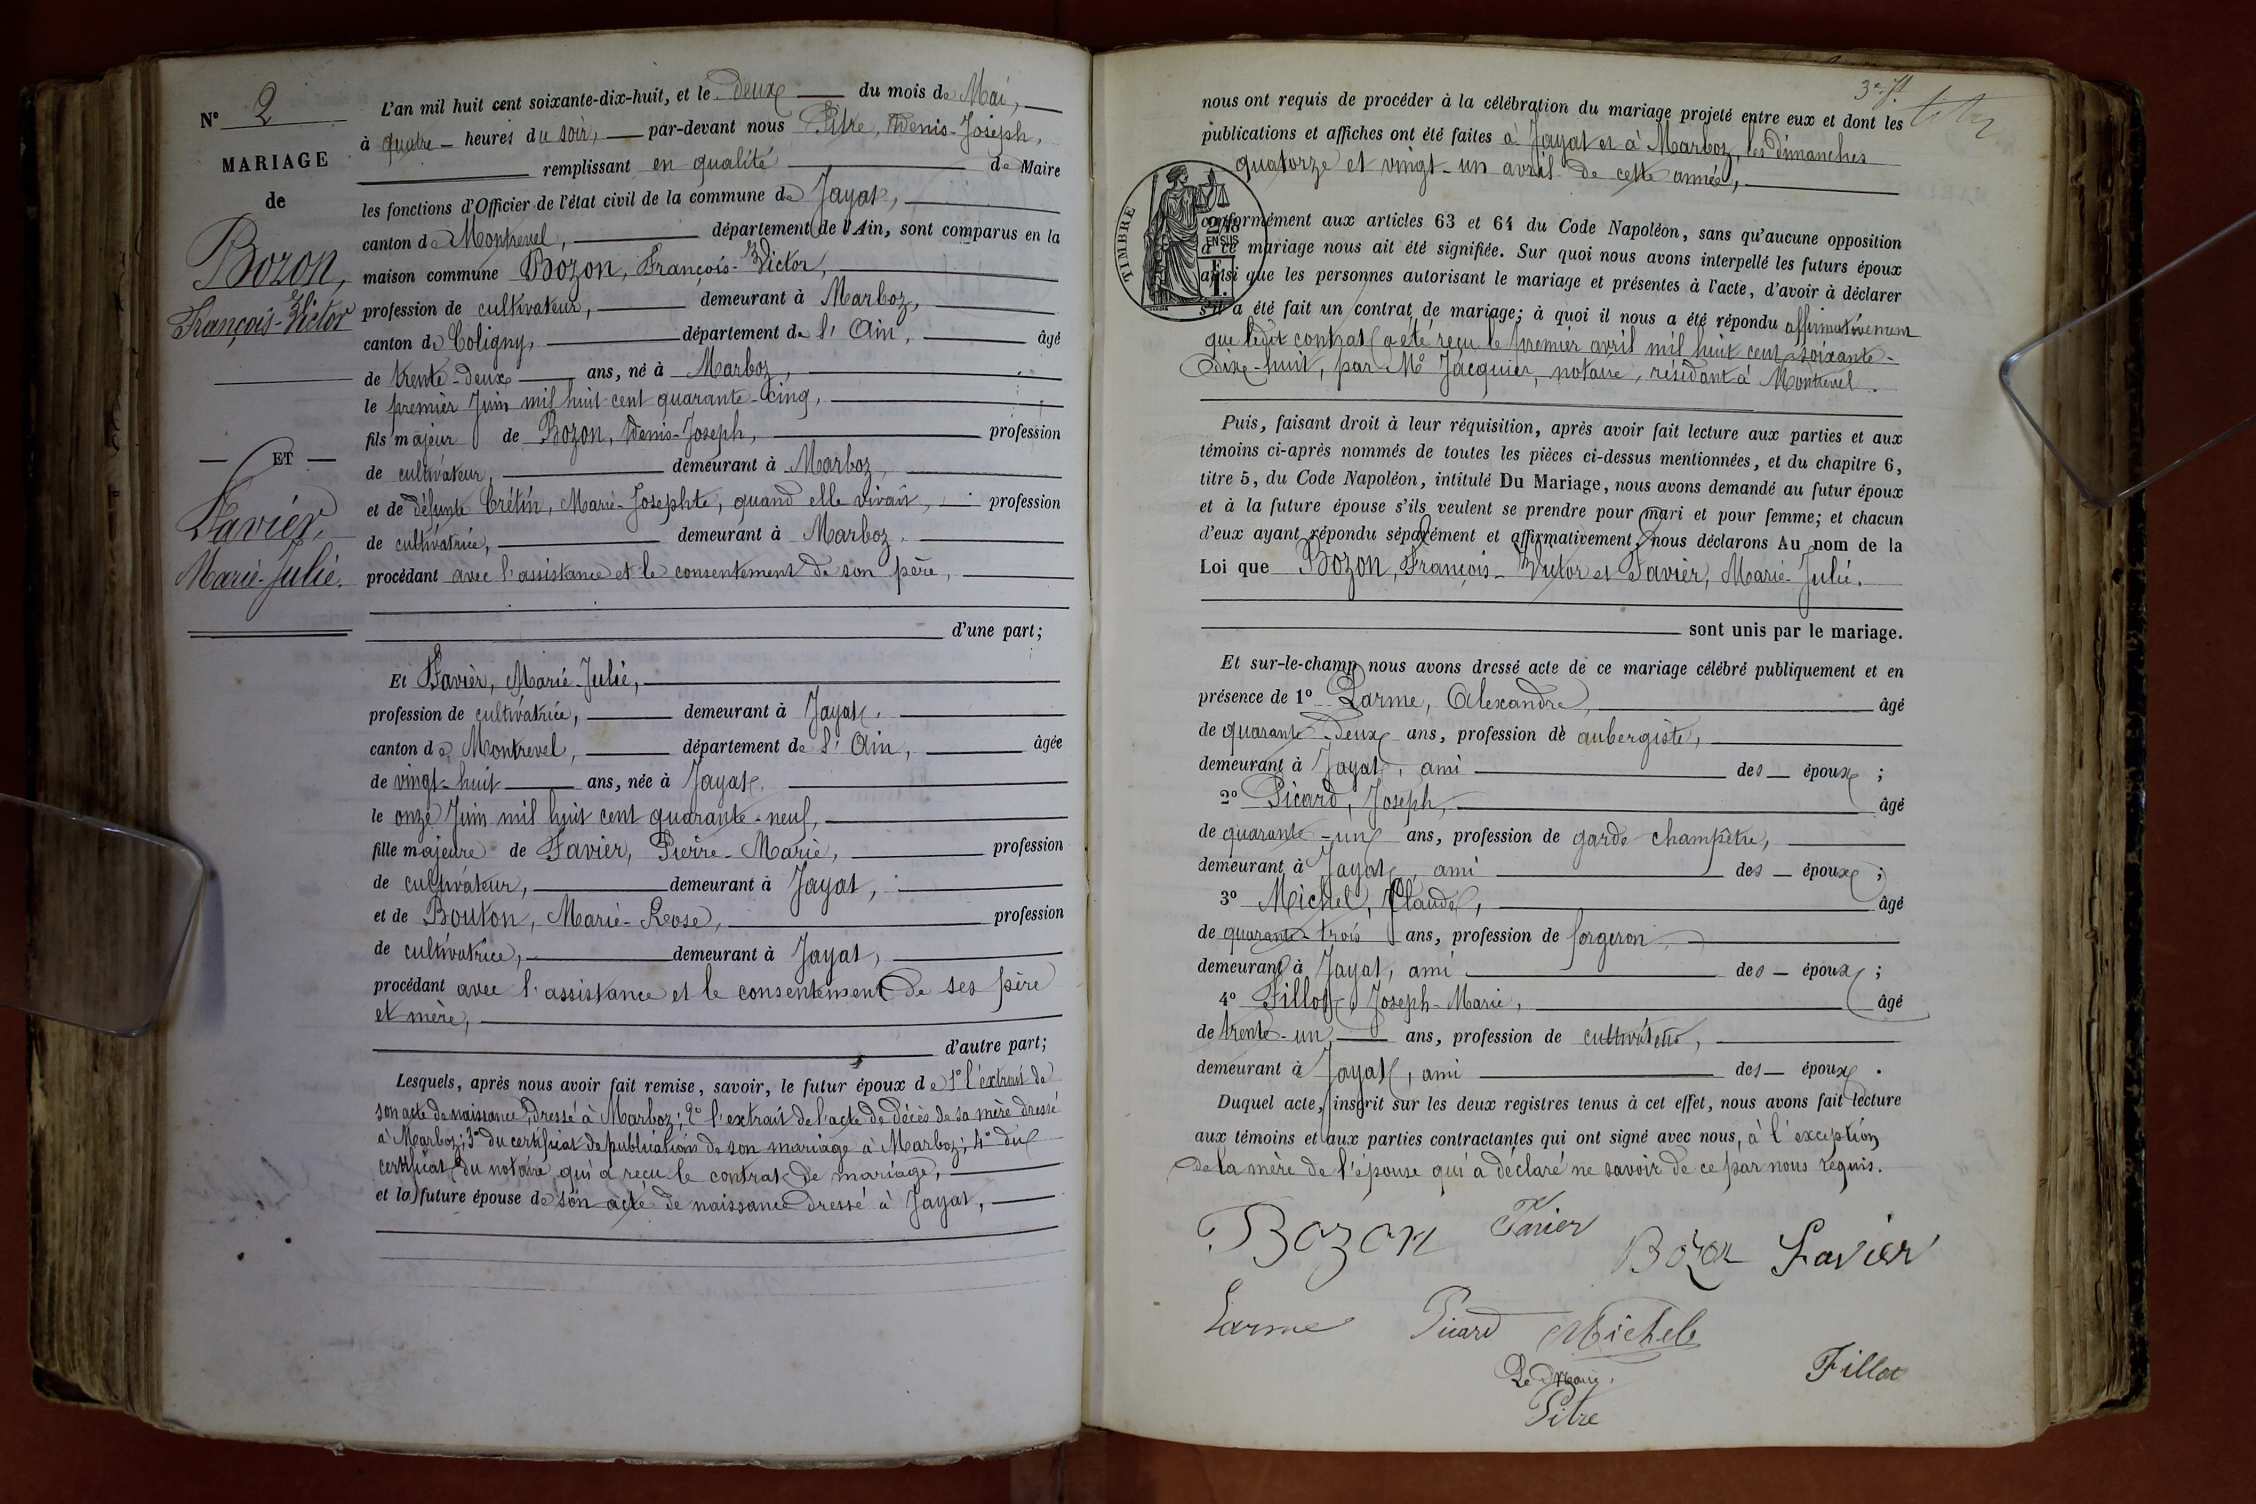 N° 2
MARIAGE
de
Bozon,
François-Victor
ET
Favier,
Marie-Julie.
L'an mil huit cent soixante-dix-huit, et le deux du mois de Mai,
à quatre heures du soir, par-devant nous Pitre, Denis-Joseph,
remplissant en qualité de Maire
les fonctions d'Officier de l'état civil de la commune de Jayat,
canton de Montrevel, département de l'Ain, sont comparus en la
maison commune Bozon, François-Victor,
profession de cultivateur, demeurant à Marboz,
canton de Coligny, département de l'Ain, âgé
de trente-deux ans, né à Marboz,
le premier Juin mil huit cent quarante-cinq,
fils majeur de Bozon, Denis-Joseph, profession
de cultivateur, demeurant à Marboz,
et de défunte Crétin, Marie-Josephte, quand elle vivait, profession
de cultivatrice, demeurant à Marboz.
procédant avec l'assistance et le consentement de son père,
d'une part;
Et Favier, Marie-Julie,
profession de cultivatrice, demeurant à Jayat,
canton de Montrevel, département de l'Ain, âgée
de vingt-huit ans, née à Jayat,
le onze Juin mil huit cent quarante-neuf,
fille majeure de Favier, Pierre-Marie, profession
de cultivateur, demeurant à Jayat,
et de Bouton, Marie-Rose, profession
de cultivatrice, demeurant à Jayat,
procédant avec l'assistance et le consentement de ses père
et mère,
d'autre part;
Lesquels, après nous avoir fait remise, savoir, le futur époux de 1° l'extrait de
son acte de naissance, dressé à Marboz; 2° l'extrait de l'acte de décès de sa mère dressé
à Marboz; 3° du certificat de publication de son mariage à Marboz; 4° du
certificat du notaire qui a reçu le contrat de mariage,
et la future épouse de son acte de naissance dressé à Jayat,
nous ont requis de procéder à la célébration du mariage projeté entre eux et dont les
publications et affiches ont été faites à Jayat et à Marboz, les dimanches
quatorze et vingt-un avril de cette année,
TIMBRE
conformément aux articles 63 et 64 du Code Napoléon, sans qu'aucune opposition
EN SUS
à ce mariage nous ait été signifiée. Sur quoi nous avons interpellé les futurs époux
ainsi que les personnes autorisant le mariage et présentes à l'acte, d'avoir à déclarer
s'il a été fait un contrat de mariage; à quoi il nous a été répondu affirmativement
que ledit contrat a été reçu le premier avril mil huit cent soixante-
dix-huit, par Me Jacquier, notaire, résidant à Montrevel.
Puis, faisant droit à leur réquisition, après avoir fait lecture aux parties et aux
témoins ci-après nommés de toutes les pièces ci-dessus mentionnées, et du chapitre 6,
titre 5, du Code Napoléon, intitulé Du Mariage, nous avons demandé au futur époux
et à la future épouse s'ils veulent se prendre pour mari et pour femme; et chacun
d'eux ayant répondu séparément et affirmativement, nous déclarons Au nom de la
Loi que Bozon, François-Victor et Favier, Marie-Julie.
sont unis par le mariage.
Et sur-le-champ nous avons dressé acte de ce mariage célébré publiquement et en
présence de 1° Larme, Alexandre, âgé
de quarante-deux ans, profession de aubergiste,
demeurant à Jayat, ami des époux;
2° Picard, Joseph, âgé
de quarante-un ans, profession de garde champêtre,
demeurant à Jayat, ami des époux;
3° Michel, Claude, âgé
de quarante-trois ans, profession de forgeron,
demeurant à Jayat, ami des époux;
4° Fillot, Joseph-Marie, âgé
de trente-un ans, profession de cultivateur,
demeurant à Jayat, ami des époux.
Duquel acte, inscrit sur les deux registres tenus à cet effet, nous avons fait lecture
aux témoins et aux parties contractantes qui ont signé avec nous, à l'exception
de la mère de l'épouse qui a déclaré ne savoir de ce par nous requis.
Bozon Favier Bozon Favier
Larme Picard Michel
Fillot
Le Maire,
Pitre